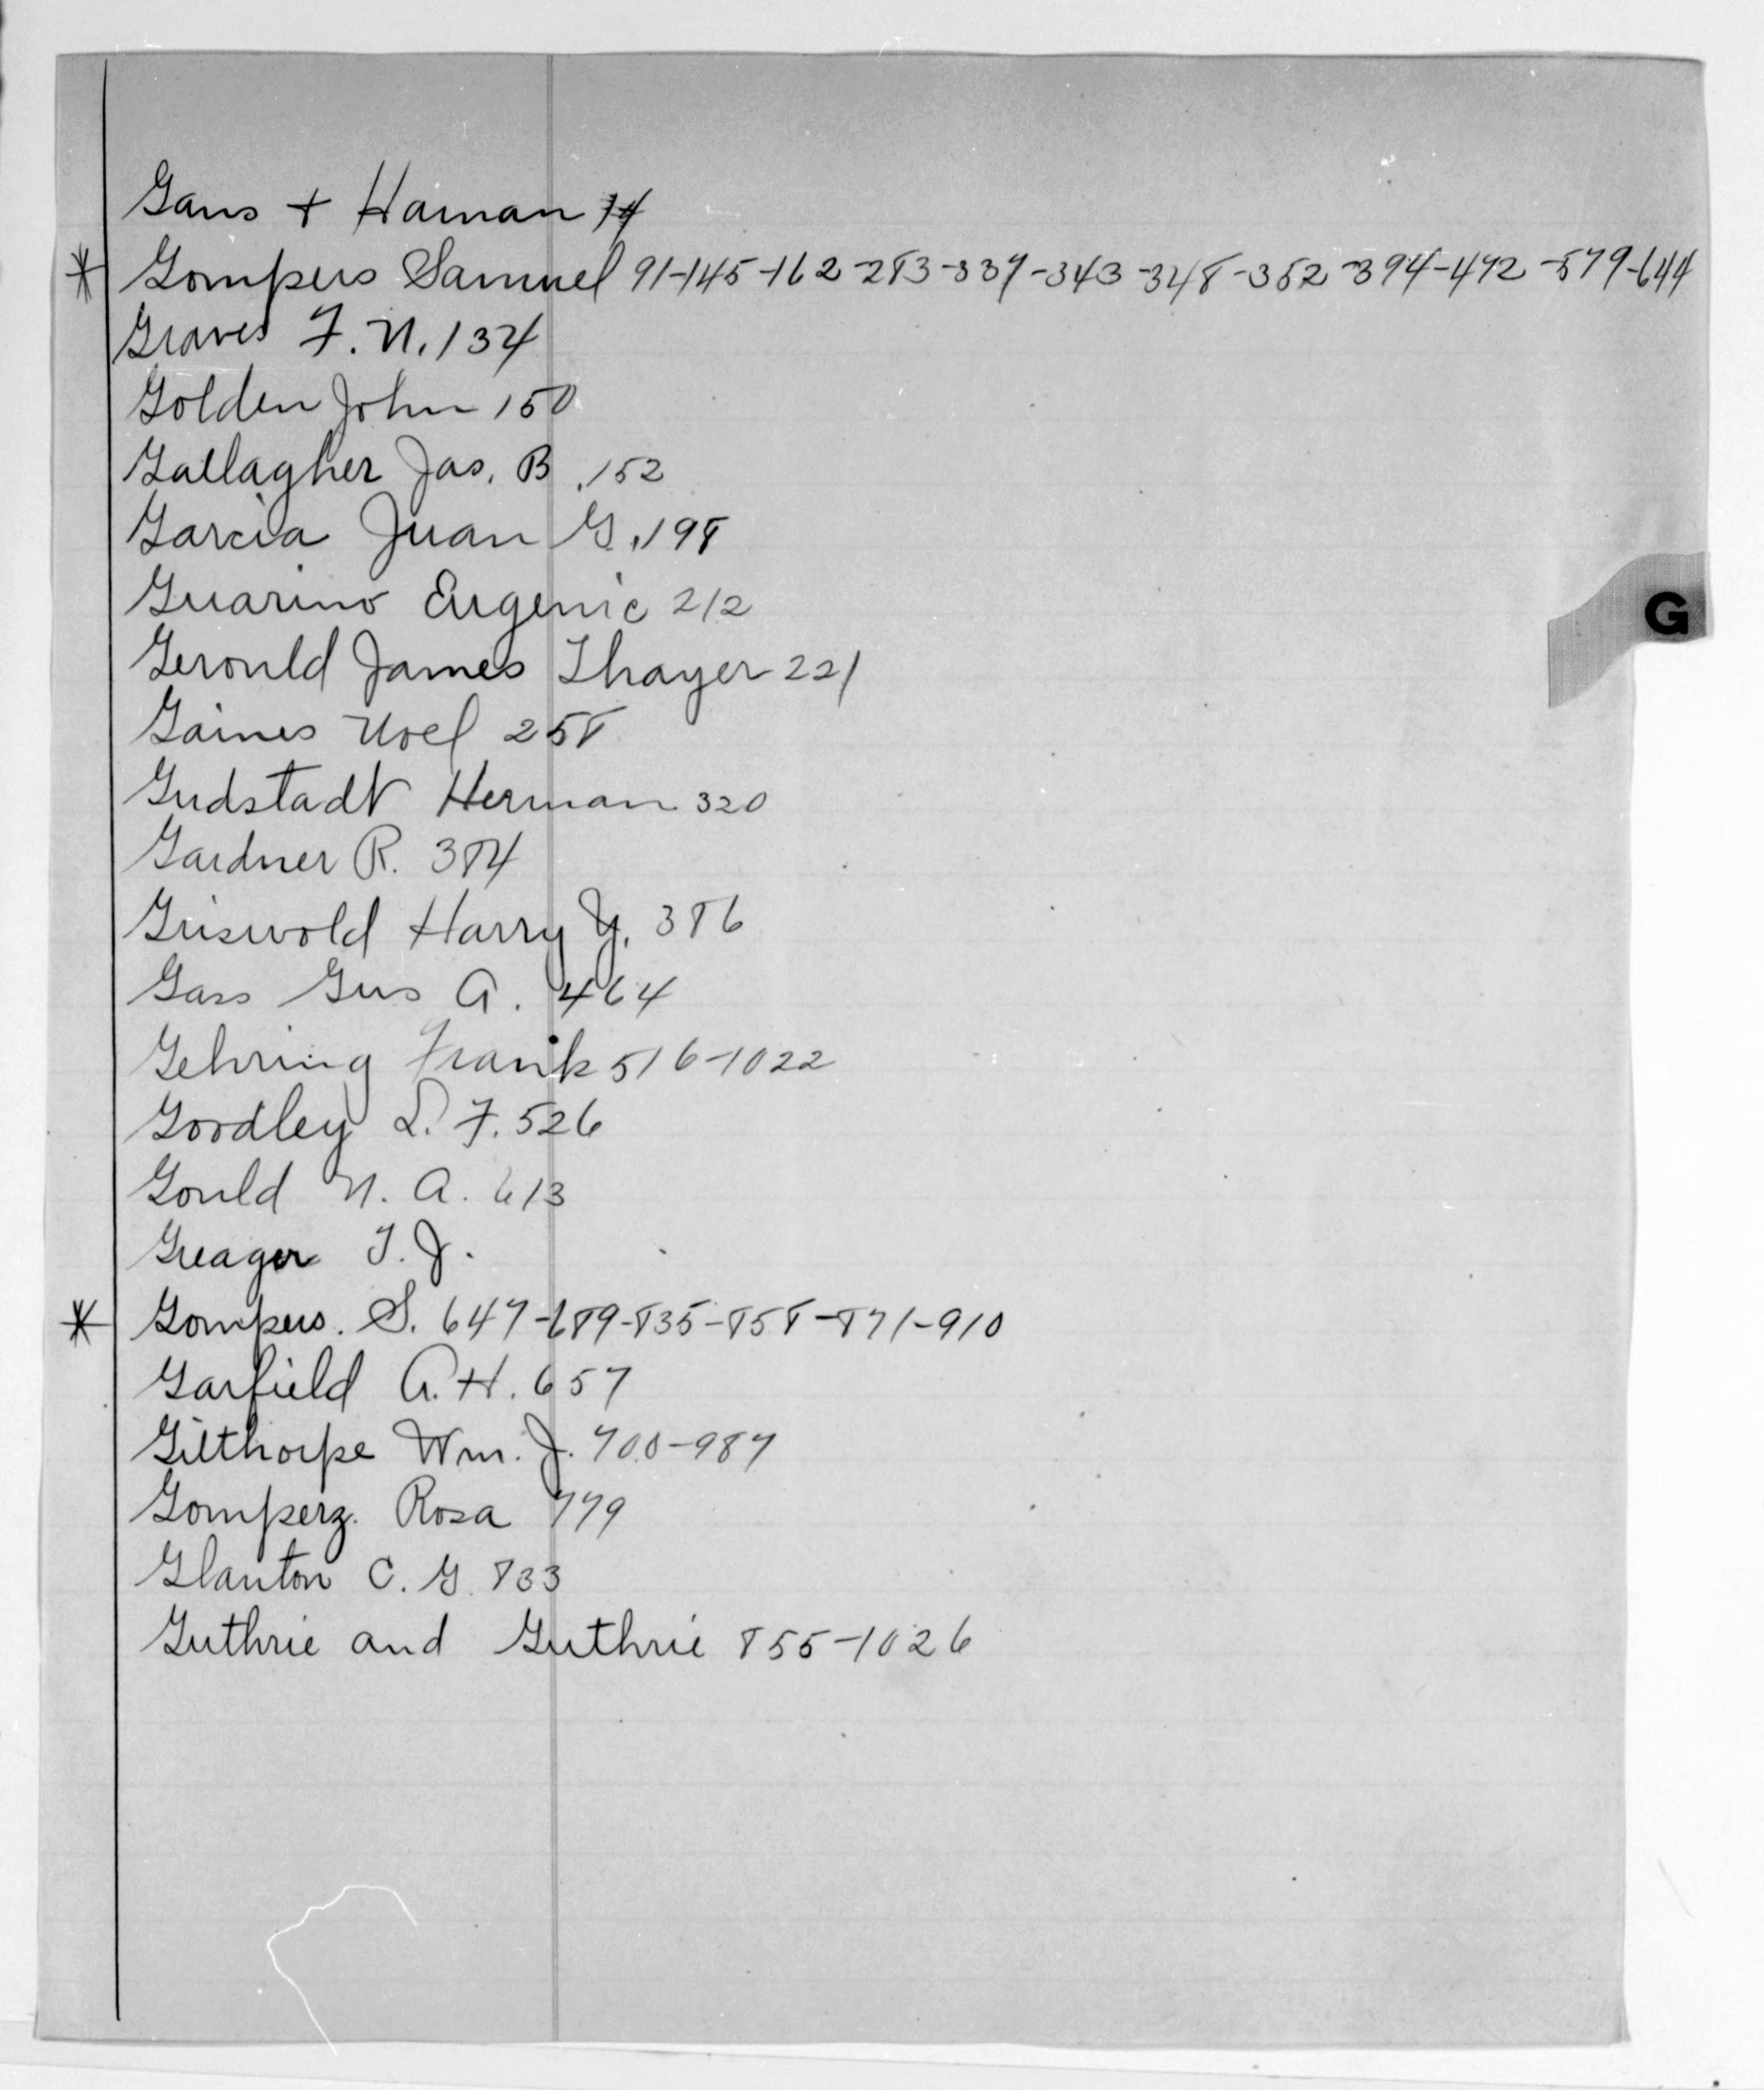 Gans + Haman 14
* Gompers Samuel 91-145-162-283-337-343-348-352-394-472-579-644
Graves F. N. 134
Golden John 150
Gallagher Jas. B. 152
Garcia Juan G. 198
G
Guarino Eugenie 212
Gerould James Thayer 221
Gaines Noel 258
Gudstadt Herman 320
Gardner R. 384
Griswold Harry Y. 386
Gass Gus A. 464
Gehring Frank 516-1022
Goodley L. F. 526
Gould N. A. 613
Greager T. J.
* Gompers. S. 647-689-835-858-871-910
Garfield A. H. 657
Gilthorpe Wm. J. 700-987
Gomperz. Rosa 779
Glanton C. G. 833
Guthrie and Guthrie 855-1026